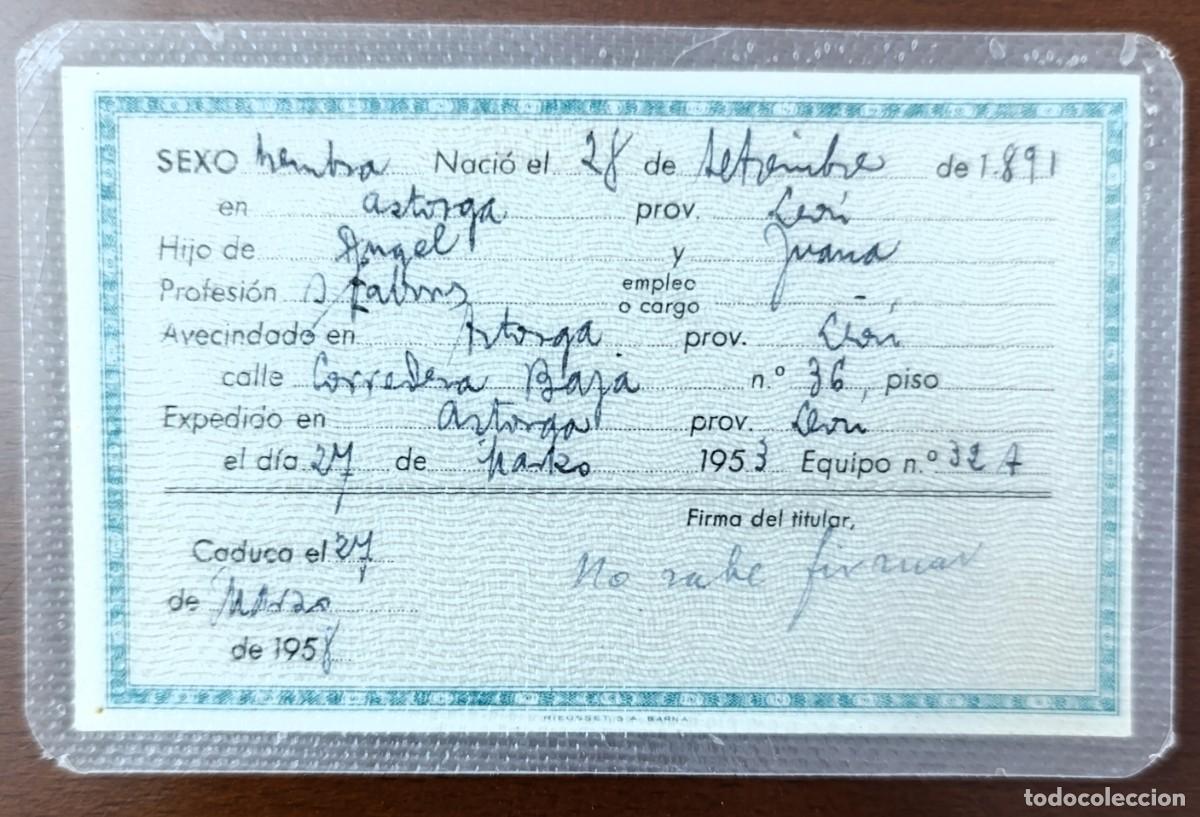 SEXO hembra Nació el 28 de Setiembre de 1.891
en Astorga prov. León
Hijo de Angel y Juana
Profesión S/ Labores empleo o cargo
Avecindado en Astorga prov. León
calle Corredera Baja n.º 36, piso
Expedido en Astorga prov. León
el día 27 de Marzo 1953 Equipo n.º 32 A
Firma del titular,
Caduca el 27 No sabe firmar
de Marzo
de 1958
RIEUSSET, S.A. BARNA
todocoleccion